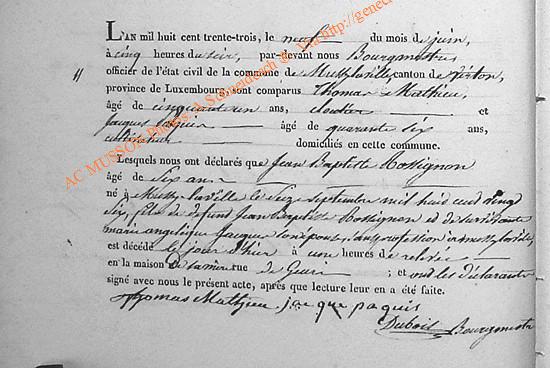 L'AN mil huit cent trente-trois, le neuf du mois de juin,
à cinq heures du soir, par-devant nous Bourgmestre,
11 officier de l'état civil de la commune de Mussylaville canton de Virton,
province de Luxembourg, sont comparus Thomas Mathieu,
âgé de cinquante un ans, cloutier et
Jacques âgé de quarante six ans,
cultivateur domiciliés en cette commune.
Lesquels nous ont déclarés que Jean Baptiste Rossignon
âgé de Six ans
né à Mussy laville le Seize Septembre mil huit cent vingt
Six, fils de defunt Jean Baptiste Rossignon et de
marie angelique Jacques son épouse, sans profession à mussy laville
est décédé le jour d'hier à une heures de relevée
en la maison De sa mère rue de ; et ont les déclarants
signé avec nous le présent acte, après que lecture leur en a été faite.
thomas Mathieu j que paquis
Dubois Bourgmestre
AC MUSSON Photos A. Schneidesch © Via http://genec